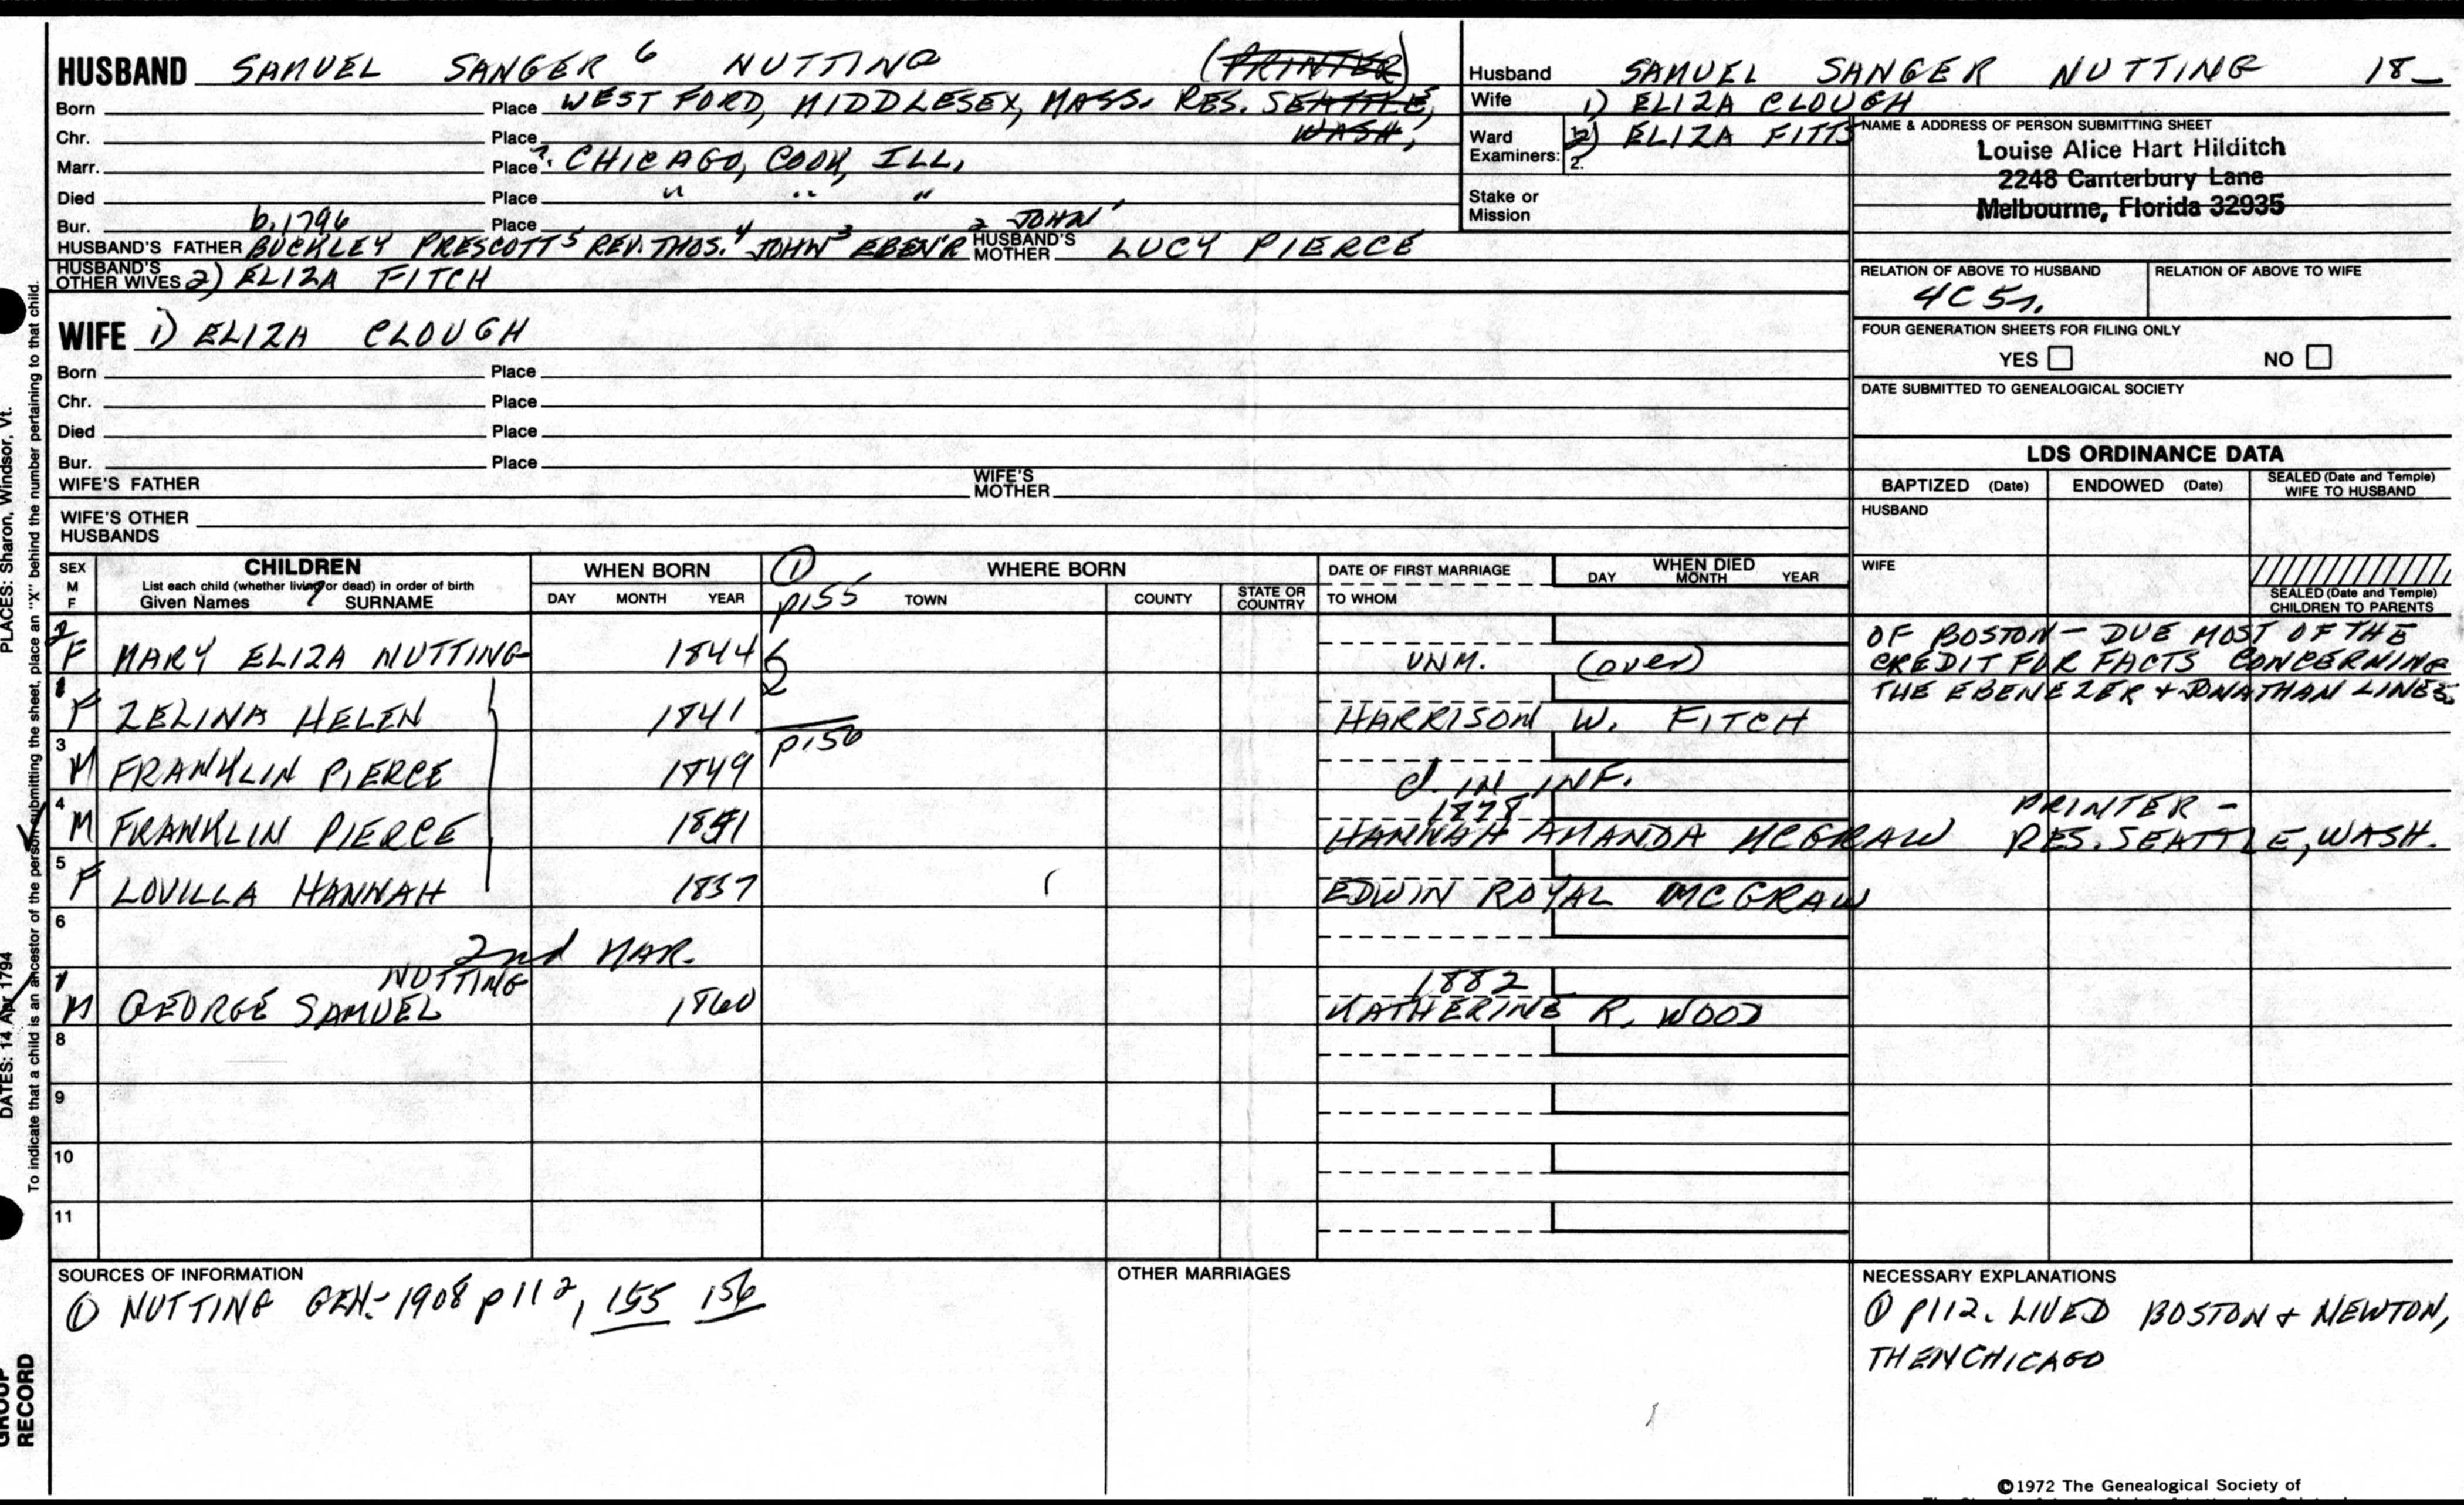 HUSBAND SAMUEL SANGER 6 NUTTING (PRINTER)
Born Place WEST FORD, MIDDLESEX, MASS. RES. SEATTLE,
Chr. Place WASH,
Marr. Place ?. CHICAGO, COOK, ILL,
Died Place " " "
Bur. b.1796 Place 2 JOHN 1
HUSBAND'S FATHER BUCKLEY PRESCOTT 5 REV. THOS. 4 JOHN 3 EBEN'R HUSBAND'S MOTHER LUCY PIERCE
HUSBAND'S OTHER WIVES 2) ELIZA FITCH
Husband SAMUEL SANGER NUTTING 18_
Wife 1) ELIZA CLOUGH
Ward Examiners: 1. 2) ELIZA FITTS
2.
Stake or Mission
NAME & ADDRESS OF PERSON SUBMITTING SHEET
Louise Alice Hart Hilditch
2248 Canterbury Lane
Melbourne, Florida 32935
RELATION OF ABOVE TO HUSBAND RELATION OF ABOVE TO WIFE
4C 5r.
FOUR GENERATION SHEETS FOR FILING ONLY
YES NO
DATE SUBMITTED TO GENEALOGICAL SOCIETY
WIFE 1) ELIZA CLOUGH
Born Place
Chr. Place
Died Place
Bur. Place
WIFE'S FATHER WIFE'S MOTHER
WIFE'S OTHER HUSBANDS
LDS ORDINANCE DATA
BAPTIZED (Date) ENDOWED (Date) SEALED (Date and Temple) WIFE TO HUSBAND
HUSBAND
WIFE
SEALED (Date and Temple) CHILDREN TO PARENTS
SEX M F CHILDREN WHEN BORN ① WHERE BORN DATE OF FIRST MARRIAGE WHEN DIED
List each child (whether living or dead) in order of birth
Given Names SURNAME DAY MONTH YEAR p155 TOWN COUNTY STATE OR COUNTRY TO WHOM DAY MONTH YEAR
2 F MARY ELIZA NUTTING 1844 UNM. (over)
OF BOSTON - DUE MOST OF THE
CREDIT FOR FACTS CONCERNING
THE EBENEZER + JONATHAN LINES
1 F ZELINA HELEN 1841 HARRISON W. FITCH
p156
3 M FRANKLIN PIERCE 1849 d. IN INF.
4 1878 PRINTER -
M FRANKLIN PIERCE 1851 HANNAH AMANDA MCGRAW RES. SEATTLE, WASH.
5 F LOVILLA HANNAH 1857 EDWIN ROYAL MCGRAW
6
2nd MAR.
7 NUTTING 1882
M GEORGE SAMUEL 1860 KATHERINE R. WOOD
8
9
10
11
SOURCES OF INFORMATION
① NUTTING GEN:- 1908 p112, 155 156
OTHER MARRIAGES
NECESSARY EXPLANATIONS
① p112. LIVED BOSTON + NEWTON,
THEN CHICAGO
©1972 The Genealogical Society of
PLACES: Sharon, Windsor, Vt.
DATES: 14 Apr 1794
To indicate that a child is an ancestor of the person submitting the sheet, place an "X" behind the number pertaining to that child.
GROUP
RECORD